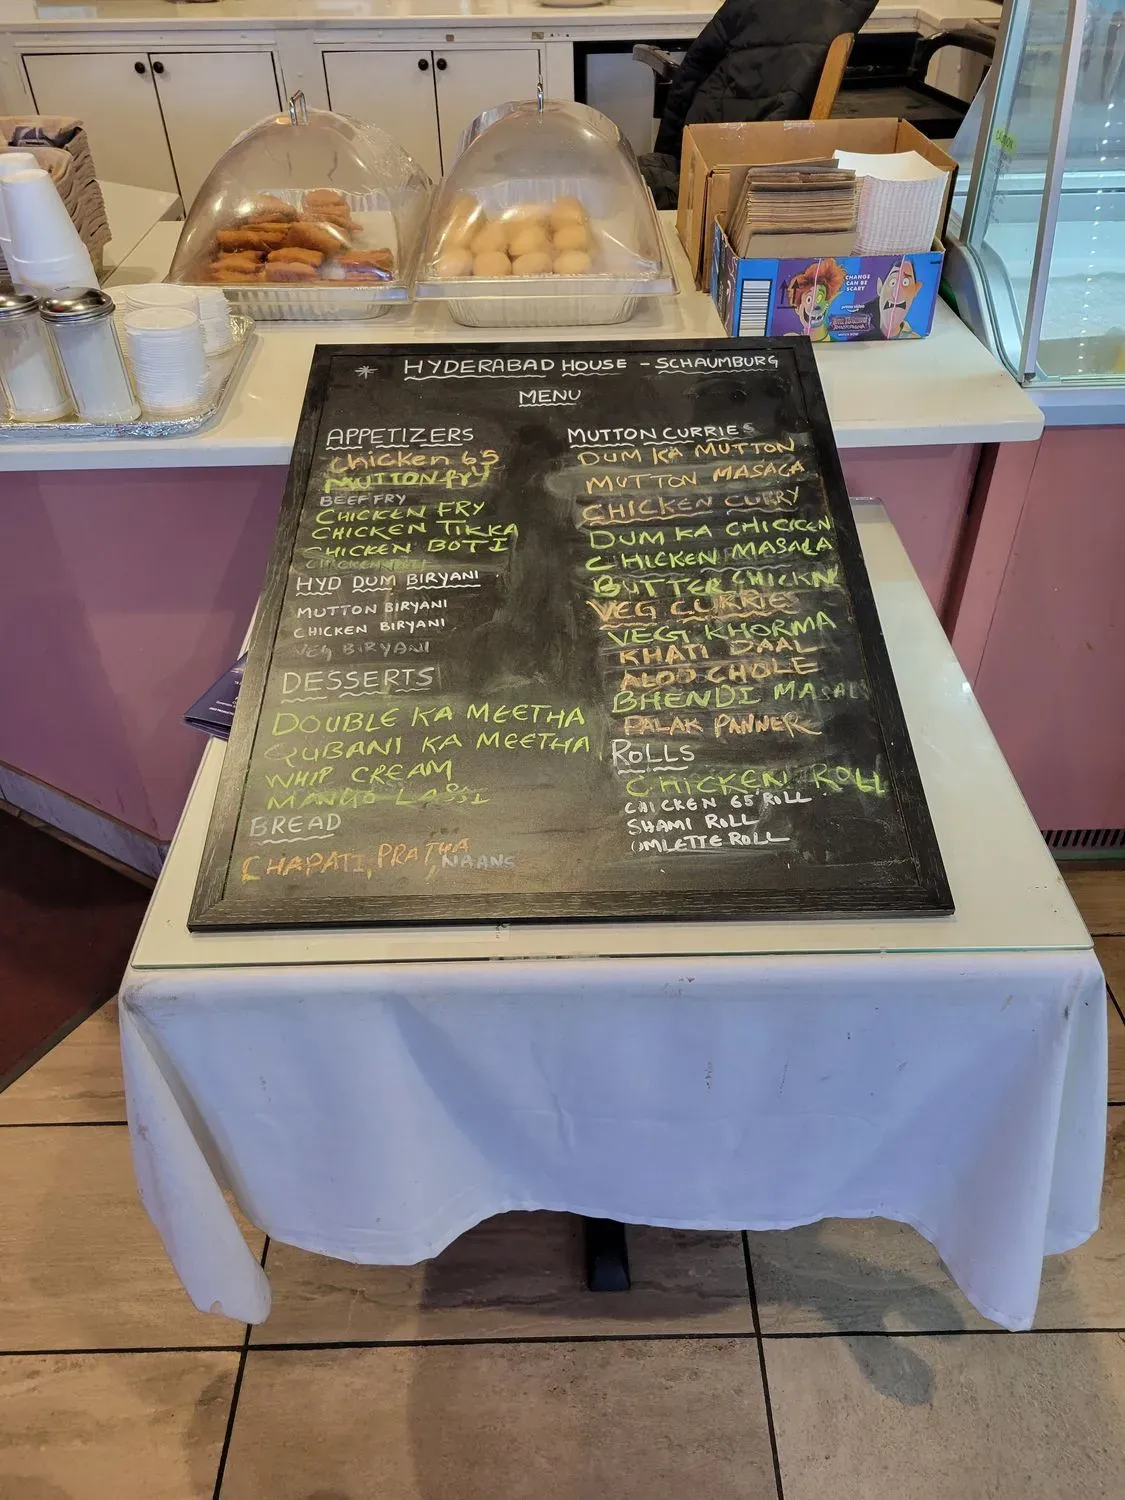 * HYDERABAD HOUSE - SCHAUMBURG
MENU
APPETIZERS
Chicken 65
MUTTON FRY
BEEF FRY
CHICKEN FRY
CHICKEN TIKKA
CHICKEN BOTI
HYD DUM BIRYANI
MUTTON BIRYANI
CHICKEN BIRYANI
VEG BIRYANI
DESSERTS
DOUBLE KA MEETHA
QUBANI KA MEETHA
WHIP CREAM
MANGO LASSI
BREAD
CHAPATI, PRATHA, NAANS
MUTTON CURRIES
DUM KA MUTTON
MUTTON MASALA
CHICKEN CURRY
DUM KA CHICKEN
CHICKEN MASALA
BUTTER CHICKN
VEG CURRIE
VEGI KHORMA
KHATI DAAL
ALOO CHOLE
BHENDI MASALA
PALAK PANNER
ROLLS
CHICKEN ROLL
CHICKEN 65 ROLL
SHAMI ROLL
OMLETTE ROLL
CHANGE
CAN BE
SCARY
prime video